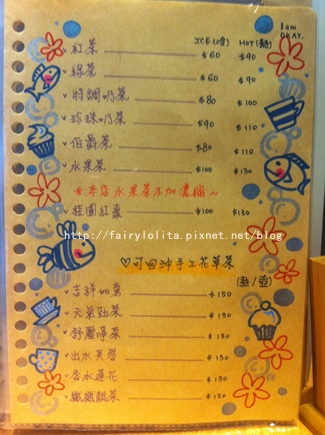 I am OKAY.
ICE(冷) HOT(熱)
紅茶 $60 $90
綠茶 $60 $90
特調奶茶 $80 $100
珍珠奶茶 $90 $110
伯爵茶 $80 $110
水果茶 $100 $130
※本店水果茶不加濃縮~
桂圓紅棗 $100 $130
http://fairylolita.pixnet.net/blog
♡可回沖手工花草茶
(熱/壺)
吉祥如意 $150
元氣勁茶 $130
舒壓淨茶 $130
出水芙蓉 $130
香水蓮花 $130
纖纖靚茶 $130